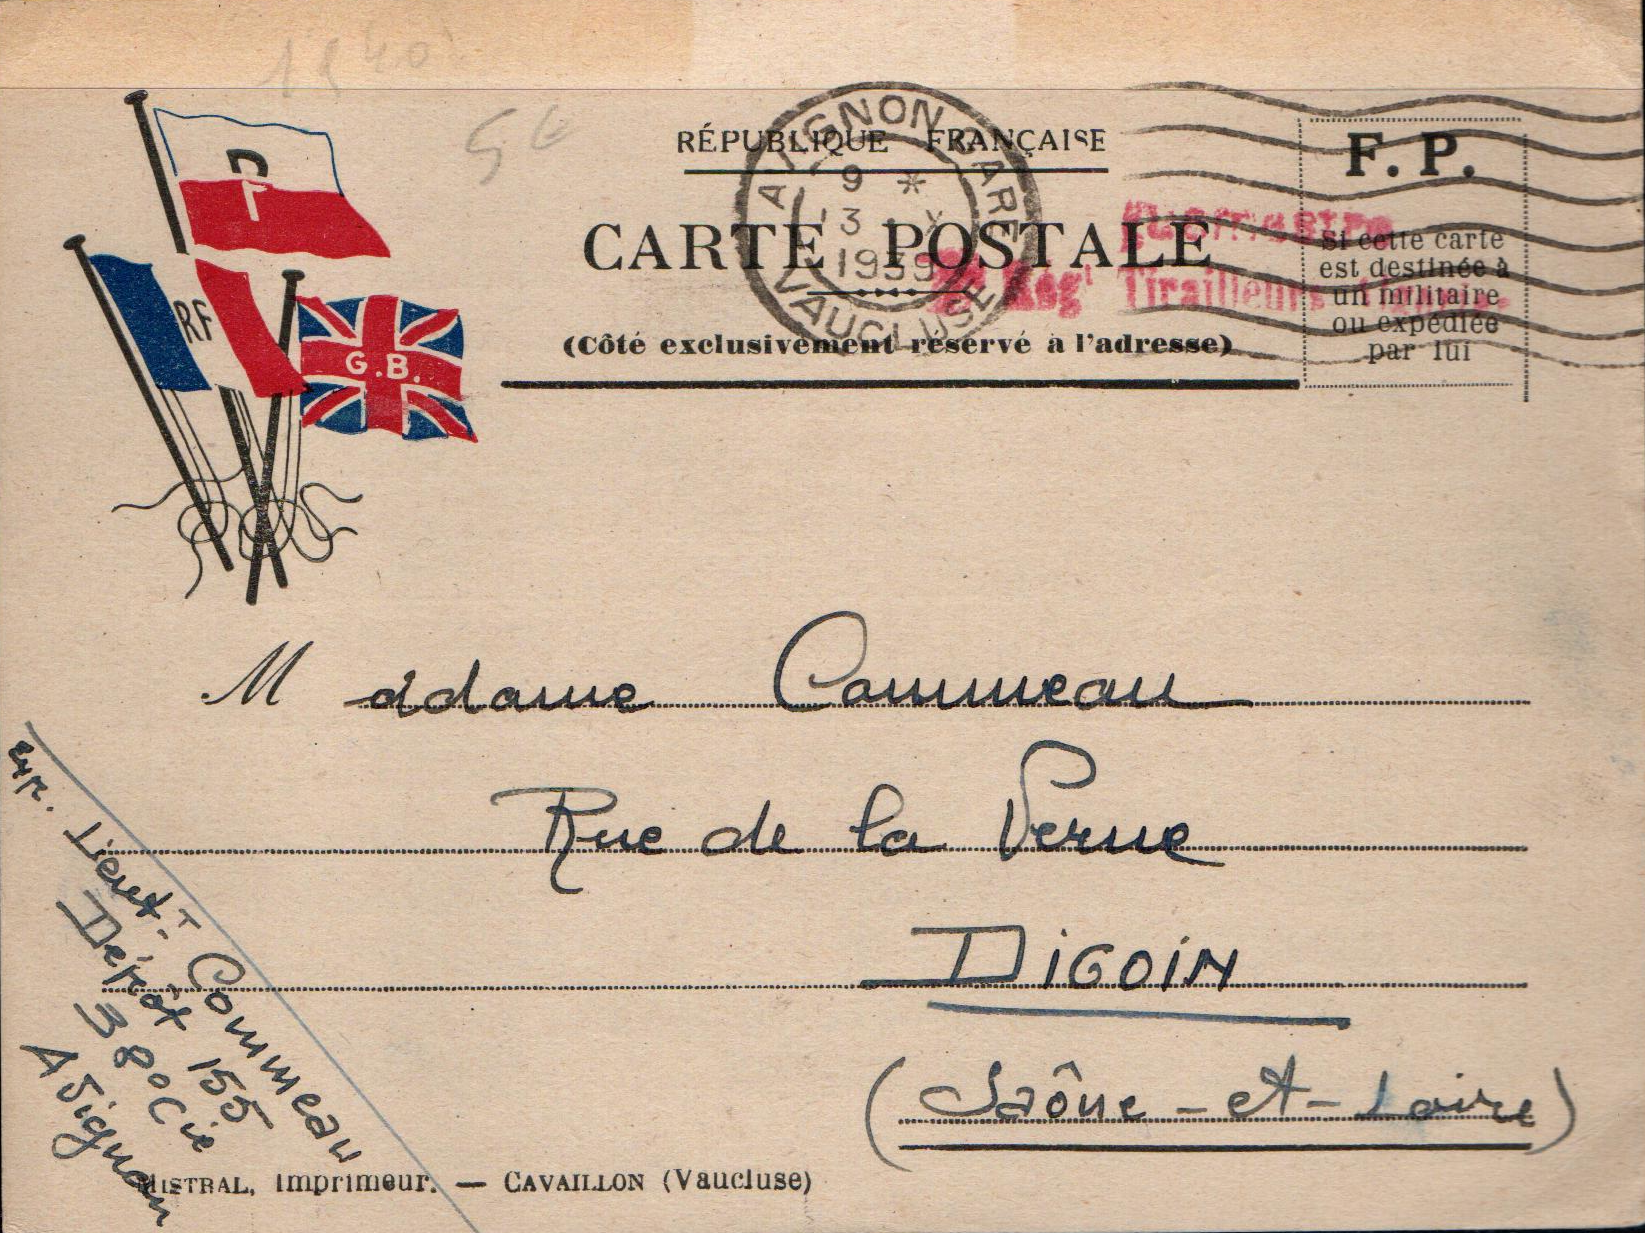 1940
5€
P
RF
G.B.
RÉPUBLIQUE FRANÇAISE
CARTE POSTALE
(Côté exclusivement réservé à l'adresse)
AVIGNON GARE
9 *
3 X
1939
VAUCLUSE
Régt Tirailleurs
F. P.
Si cette carte
est destinée à
un militaire
ou expédiée
par lui
Madame Commeau
Rue de la Verne
DIGOIN
(Saône-et-Loire)
exp. Lieut-T Commeau
Dépôt 155
38º Cie
Avignon
MISTRAL, Imprimeur. — CAVAILLON (Vaucluse)